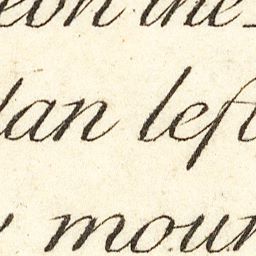 eon the
lan left
mour